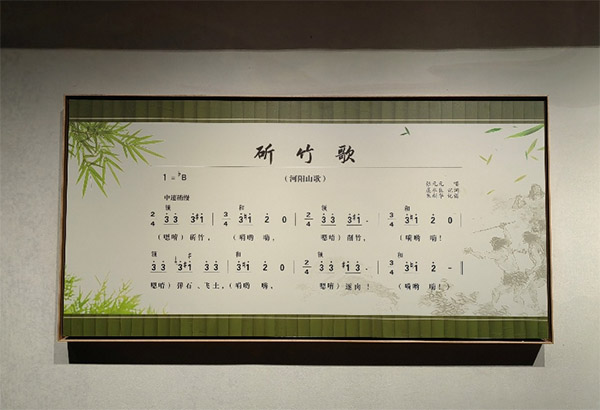 斫竹歌
（河阳山歌）
1=♭B
张元元 唱
中速稍慢
领 和 领 和
2/4 3 3 3♯1 | 3/4 3♮1 2 0 | 2/4 3 3 3♯1 · | 3/4 3♮1 2 0 |
（嗯唷）斫竹，（嗬哟 嗨，（嗯唷）削竹，（嗬哟 嗨！）
领 和 领 和
2/4 3 3 3 3 | 3/4 2 0 | 2/4 3 3 ♯1 3 · | 3/4 2 -
（嗯唷）弹石、飞土，（嗬哟 嗨，（嗯唷）逐肉！（嗬哟 嗨！）